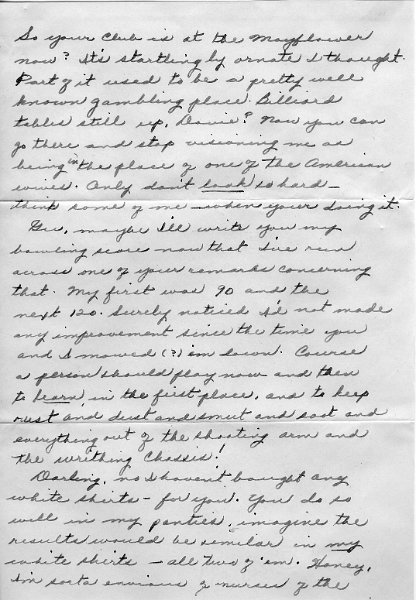 So your Club is at the Mayflower
now? It's startlingly ornate I thought.
Part of it used to be a pretty well
known gambling place. Billiard
tables still up, Davie? Now you can
go there and stop visioning me as
being in the place of one of the American
wives. Only don't look so hard –
think some of me – when your doing it.
Gee, maybe I'll write you my
bowling score now that I've run
across one of your remarks concerning
that. My first was 90 and the
next 120. Surely noticed I'd not made
any improvement since the time you
and I mowed (?) 'em down. Course
a person should play now and then
to learn, in the first place, and to keep
rust and dust and smut and soot and
everything out of the shooting arm and
the writhing Chassis!
Darling, no I haven't bought any
white shirts – for you. You do so
well in my panties, imagine the
results would be similar in my
white shirts – all two of 'em. Honey,
I'm sorta envious of nurses of the